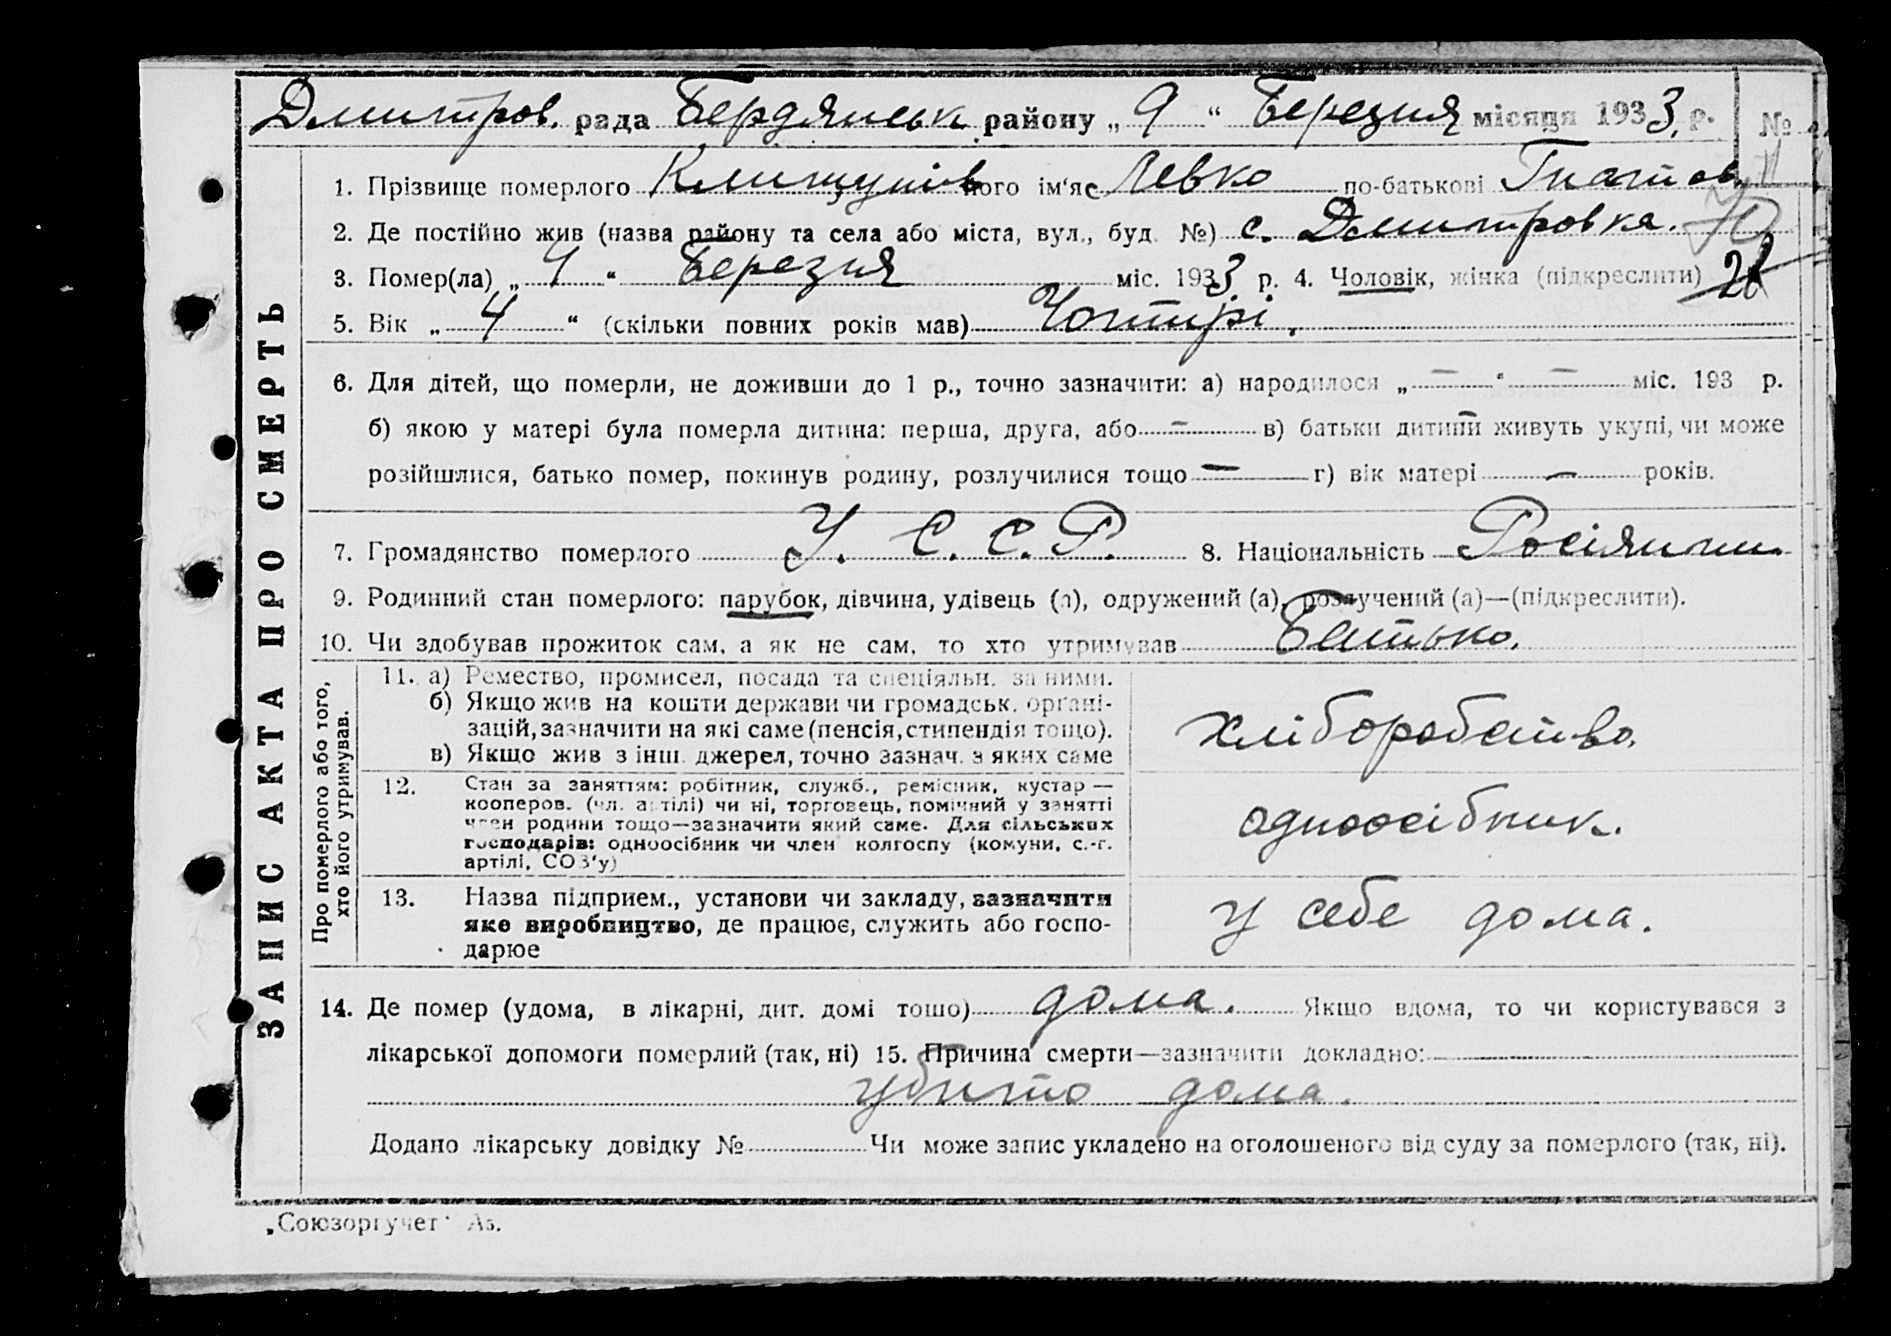 Дмитров. рада Бердянськ району „ 9 “ Березня місяця 1933 р. №
1. Прізвище померлого Клищунів його ім'я Левко по-батькові Гнатов.
2. Де постійно жив (назва району та села або міста, вул., буд. №) с. Дмитровка.
3. Помер(ла) „ 4 “ Березня міс. 1933 р. 4. Чоловік, жінка (підкреслити)
5. Вік „ 4 “ (скільки повних років мав) Чотирі.
6. Для дітей, що померли, не доживши до 1 р., точно зазначити: а) народилося „ — “ — міс. 193 р.
б) якою у матері була померла дитина: перша, друга, або — в) батьки дитини живуть укупі, чи може
розійшлися, батько помер, покинув родину, розлучилися тощо — г) вік матері — років.
7. Громадянство померлого У. С. С. Р. 8. Національність Росіянин
9. Родинний стан померлого: парубок, дівчина, удівець (а), одружений (а), розлучений (а)—(підкреслити).
10. Чи здобував прожиток сам, а як не сам, то хто утримував Батько.
ЗАПИС АКТА ПРО СМЕРТЬ
Про померлого або того,
хто його утримував.
11. а) Ремество, промисел, посада та спеціяльн. за ними.
б) Якщо жив на кошти держави чи громадськ. органі-
зацій, зазначити на які саме (пенсія, стипендія тощо).
в) Якщо жив з інш. джерел, точно зазнач. з яких саме
хліборобство.
12. Стан за заняттям: робітник, служб., ремісник, кустар —
кооперов. (чл. артілі) чи ні, торговець, помічний у занятті
член родини тощо—зазначити який саме. Для сільських
господарів: одноосібник чи член колгоспу (комуни, с.-г.
артілі, СОЗ'у)
одноосібник.
13. Назва підприєм., установи чи закладу, зазначити
яке виробництво, де працює, служить або госпо-
дарює
у себе дома.
14. Де помер (удома, в лікарні, дит. домі тощо) дома. Якщо вдома, то чи користувався з
лікарської допомоги померлий (так, ні) 15. Причина смерти—зазначити докладно:
убито дома.
Додано лікарську довідку № Чи може запис укладено на оголошеного від суду за померлого (так, ні).
„Союзоргучет“ Аз.